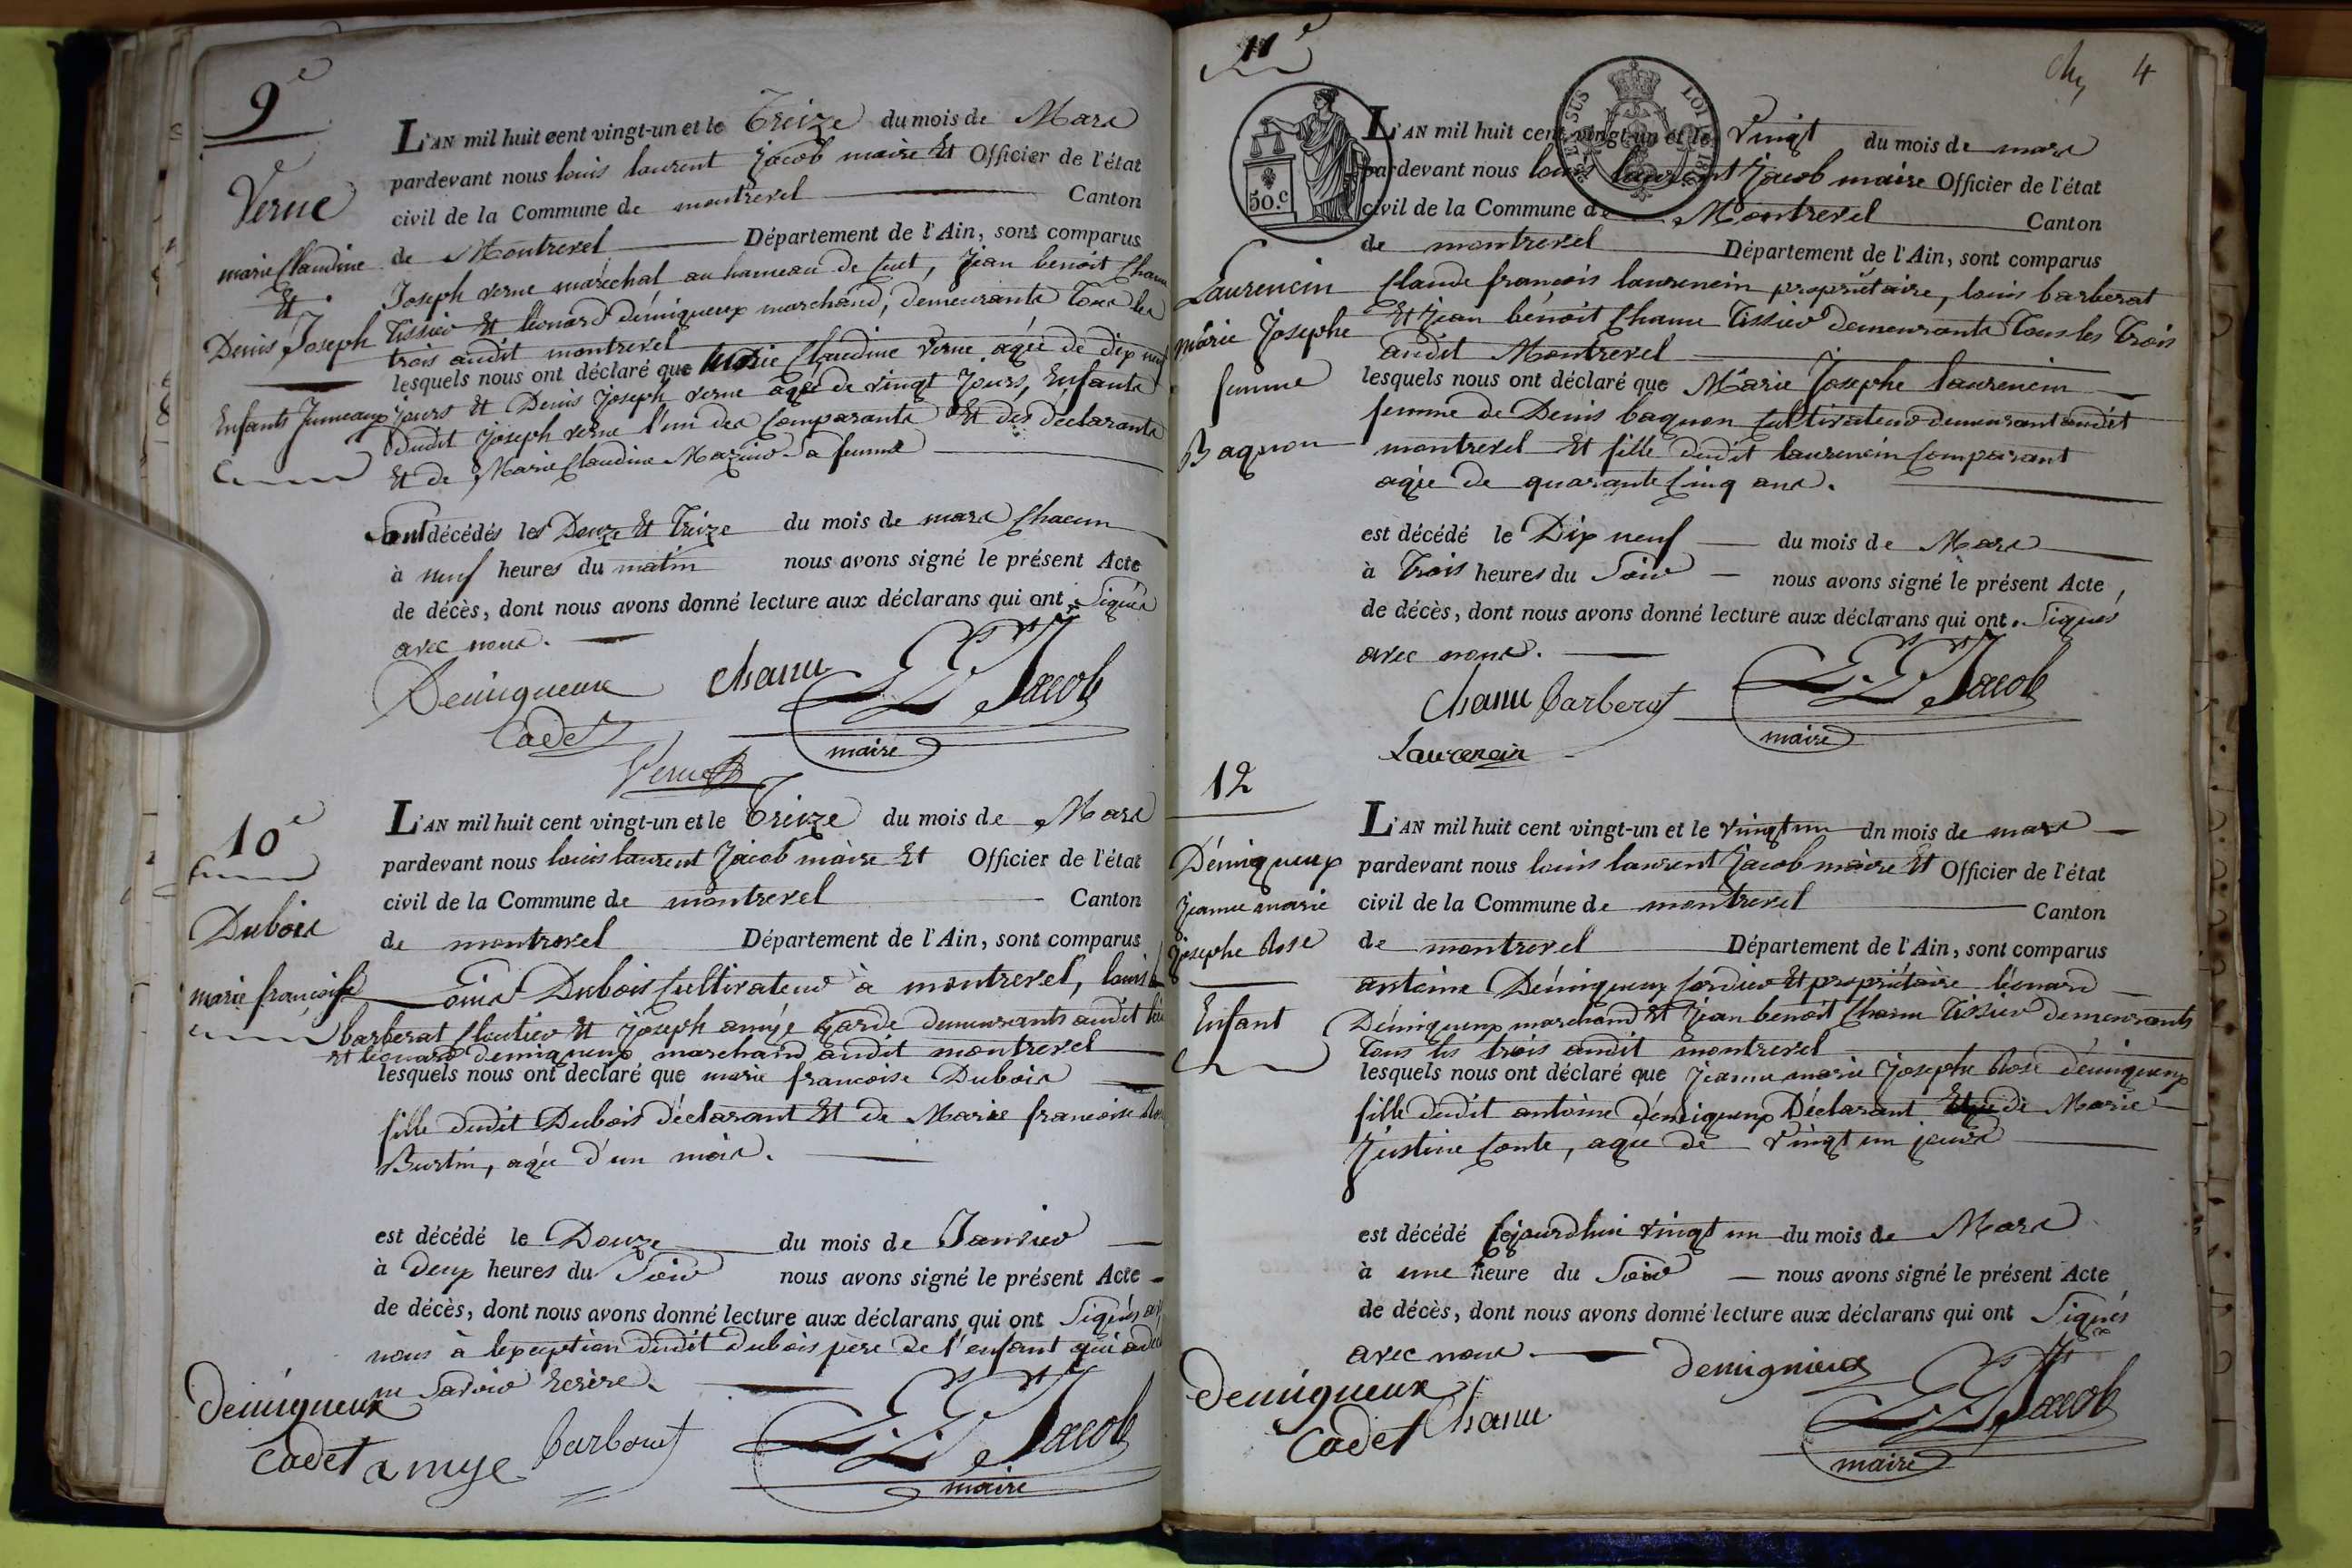 9e
Verne
marie Claudine
Et
Denis Joseph
Enfants Jumeaux
L'AN mil huit cent vingt-un et le Treize du mois de Mars
pardevant nous louis laurent Jacob maire Et Officier de l'état
civil de la Commune de montrevel Canton
de Montrevel Département de l'Ain, sont comparus
Joseph verne maréchal au hameau de Cuet, Jean benoit Chanu
Tissier Et léonard démiqueux marchand, demeurants Tous les
trois audit montrevel
lesquels nous ont déclaré que Marie Claudine Verne agée de dix neuf
jours Et Denis Joseph verne agé de vingt Jours, Enfants
dudit Joseph verne l'un des Comparants Et des déclarants
Et de Marie Claudine Mazuir Sa femme
Sont décédés les Douze Et Treize du mois de mars Chacun
à neuf heures du matin nous avons signé le présent Acte
de décès, dont nous avons donné lecture aux déclarans qui ont Signés
avec nous.
Demiqueux Chanu L L Jacob
Cadet maire
Verne
10e
Dubois
marie françoise
L'AN mil huit cent vingt-un et le Treize du mois de Mars
pardevant nous louis laurent Jacob maire Et Officier de l'état
civil de la Commune de montrevel Canton
de montrevel Département de l'Ain, sont comparus
Louis Dubois Cultivateur à montrevel, louis
barberat Cloutier Et Joseph amyé garde demeurants audit lieu
et léonard demiqueux marchand audit montrevel
lesquels nous ont déclaré que marie françoise Dubois
fille dudit Dubois déclarant Et de Marie francoise
Burtin, agée d'un mois.
est décédé le Douze du mois de Janvier
à Deux heures du Soir nous avons signé le présent Acte
de décès, dont nous avons donné lecture aux déclarans qui ont Signés
nous à lexception dudit dubois père de l'enfant qui a
ne Savoir Ecrire.
Demiqueux
Cadet amyé barberat L L Jacob
maire
11e
4
50.c
Laurencin
marie Josephe
femme
Baquon
L'AN mil huit cent vingt-un et le Vingt du mois de mars
pardevant nous louis laurent Jacob maire Officier de l'état
civil de la Commune de Montrevel Canton
de montrevel Département de l'Ain, sont comparus
Claude francois laurencin propriétaire, louis barberat
Et Jean bénoit Chanu Tissier demeurants Tous les Trois
audit Montrevel
lesquels nous ont déclaré que Marie Josephe laurencin
femme de Denis baquon Cultivateur demeurant audit
montrevel Et fille dudit laurencin Comparant
agée de quarante Cinq ans.
est décédé le Dix neuf du mois de Mars
à Trois heures du Soir nous avons signé le présent Acte
de décès, dont nous avons donné lecture aux déclarans qui ont Signés
avec nous.
Chanu barberat L L Jacob
Laurencin maire
12
Démiqueux
Jeanne marie
Josephe Rose
Enfant
L'AN mil huit cent vingt-un et le vingt un dn mois de mars
pardevant nous louis laurent Jacob maire Et Officier de l'état
civil de la Commune de montrevel Canton
de montrevel Département de l'Ain, sont comparus
antoine Démiqueux Cordier Et propriétaire léonard
Démiqueux marchand Et Jean benoit Chanu Tissier demeurants
Tous les trois audit montrevel
lesquels nous ont déclaré que Jeanne marie Josephe Rose démiqueux
fille dudit antoine démiqueux Déclarant Et de Marie
Justine Conte, agée de Vingt un jours
est décédé Cejourdhui vingt un du mois de Mars
à une heure du Soir nous avons signé le présent Acte
de décès, dont nous avons donné lecture aux déclarans qui ont Signés
avec nous.
Demiqueux demiqnieux
Cadet Chanu L L Jacob
maire